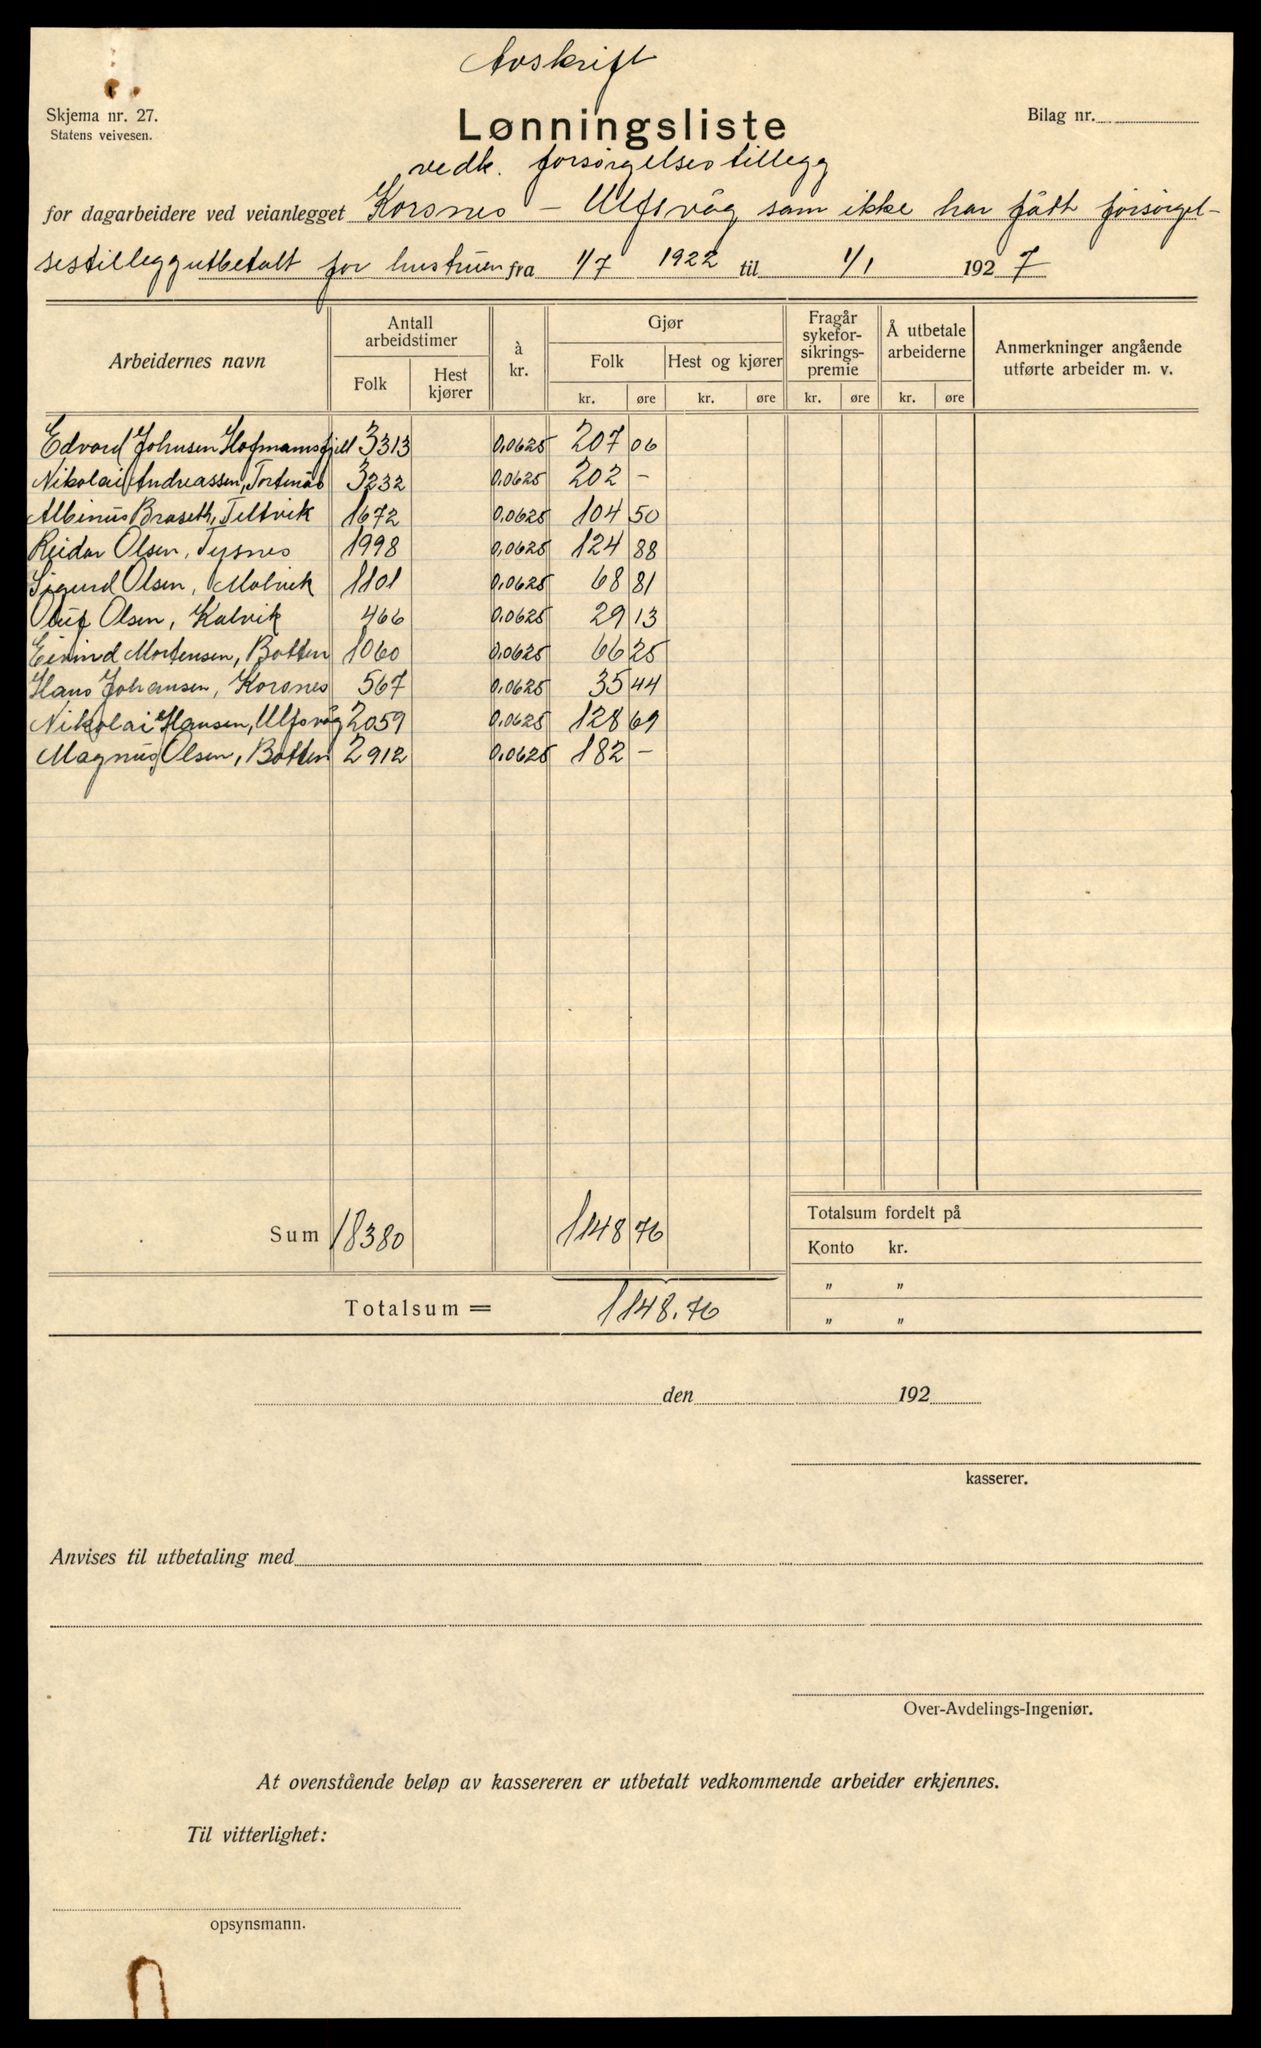 Avskrift
Skjema nr. 27.
Statens veivesen.
Bilag nr.
Lønningsliste
vedk. forsørgelsestillegg
for dagarbeidere ved veianlegget Korsnes – Ulfsvåg som ikke har fått forsørgel-
sestillegg utbetalt for hustruen fra 1/7 1922 til 1/1 1927
Arbeidernes navn
Antall arbeidstimer
Folk
Hest kjører
à kr.
Gjør
Folk
Hest og kjører
kr. øre kr. øre
Fragår sykefor-sikrings-premie
kr. øre
Å utbetale arbeiderne
kr. øre
Anmerkninger angående utførte arbeider m. v.
Edvard Johnsen Hofmannsfjell 3313 0,0625 207 06
Nikolai Andreassen, Tortenås 3232 0,0625 202 –
Albinus Braseth, Teltvik 1672 0,0625 104 50
Reidar Olsen, Tysnes 1998 0,0625 124 88
Sigurd Olsen, Molvik 1101 0,0625 68 81
Oluf Olsen, Kalvik 466 0,0625 29 13
Eivind Mortensen, Botten 1060 0,0625 66 25
Hans Johansen, Korsnes 567 0,0625 35 44
Nikolai Hansen, Ulfsvåg 2059 0,0625 128 69
Magnus Olsen, Botten 2912 0,0625 182 –
Sum 18380 1148 76
Totalsum fordelt på
Konto kr.
" "
" "
Totalsum = 1148.76
den 192
kasserer.
Anvises til utbetaling med
Over-Avdelings-Ingeniør.
At ovenstående beløp av kassereren er utbetalt vedkommende arbeider erkjennes.
Til vitterlighet:
opsynsmann.